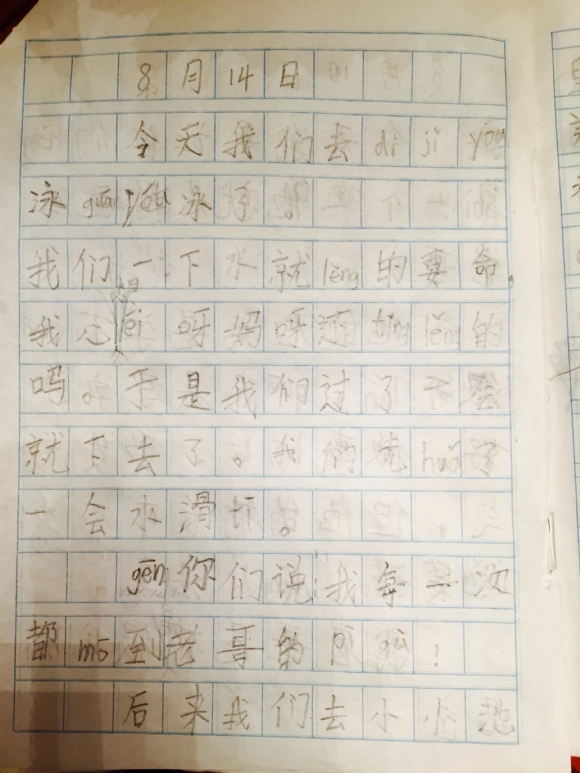 8月14日
今天我们去di ji yóu
泳guǎn yóu泳了。
我们一下水就lěng的要命。
我心想lēi呀妈呀还tǐng lěng的
吗。于是我们过了一会
就下去了。我们先huá了
一会水滑tī。
gēn你们说我每一次
都mō到老哥的pì gǔ!
后来我们去小小池